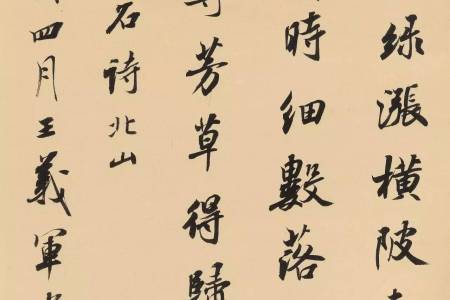 绿漲橫陂
時细數落
芳草得歸
石诗北山
四月王義軍